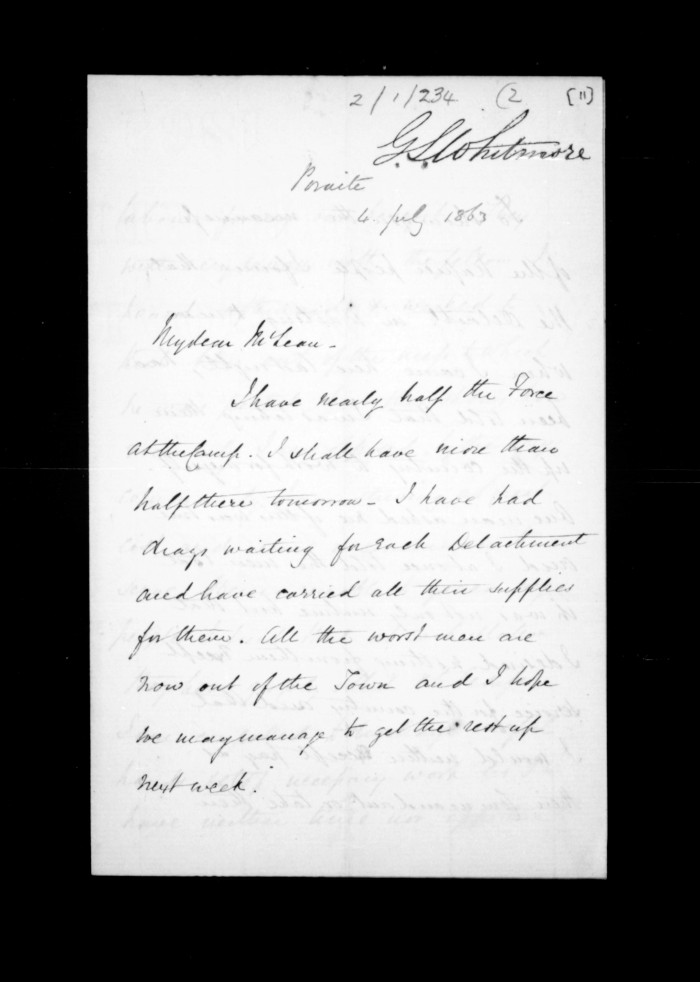 2/1/234 (2 [11]
G.S. Whitmore
4 July 1863
My dear McLean -
I have nearly half the Force
at the Camp. I shall have more than
half there tomorrow - I have had
drays waiting for each Detachment
and have carried all their supplies
for them. All the worst men are
now out of the Town and I hope
we may manage to get the rest up
next week.